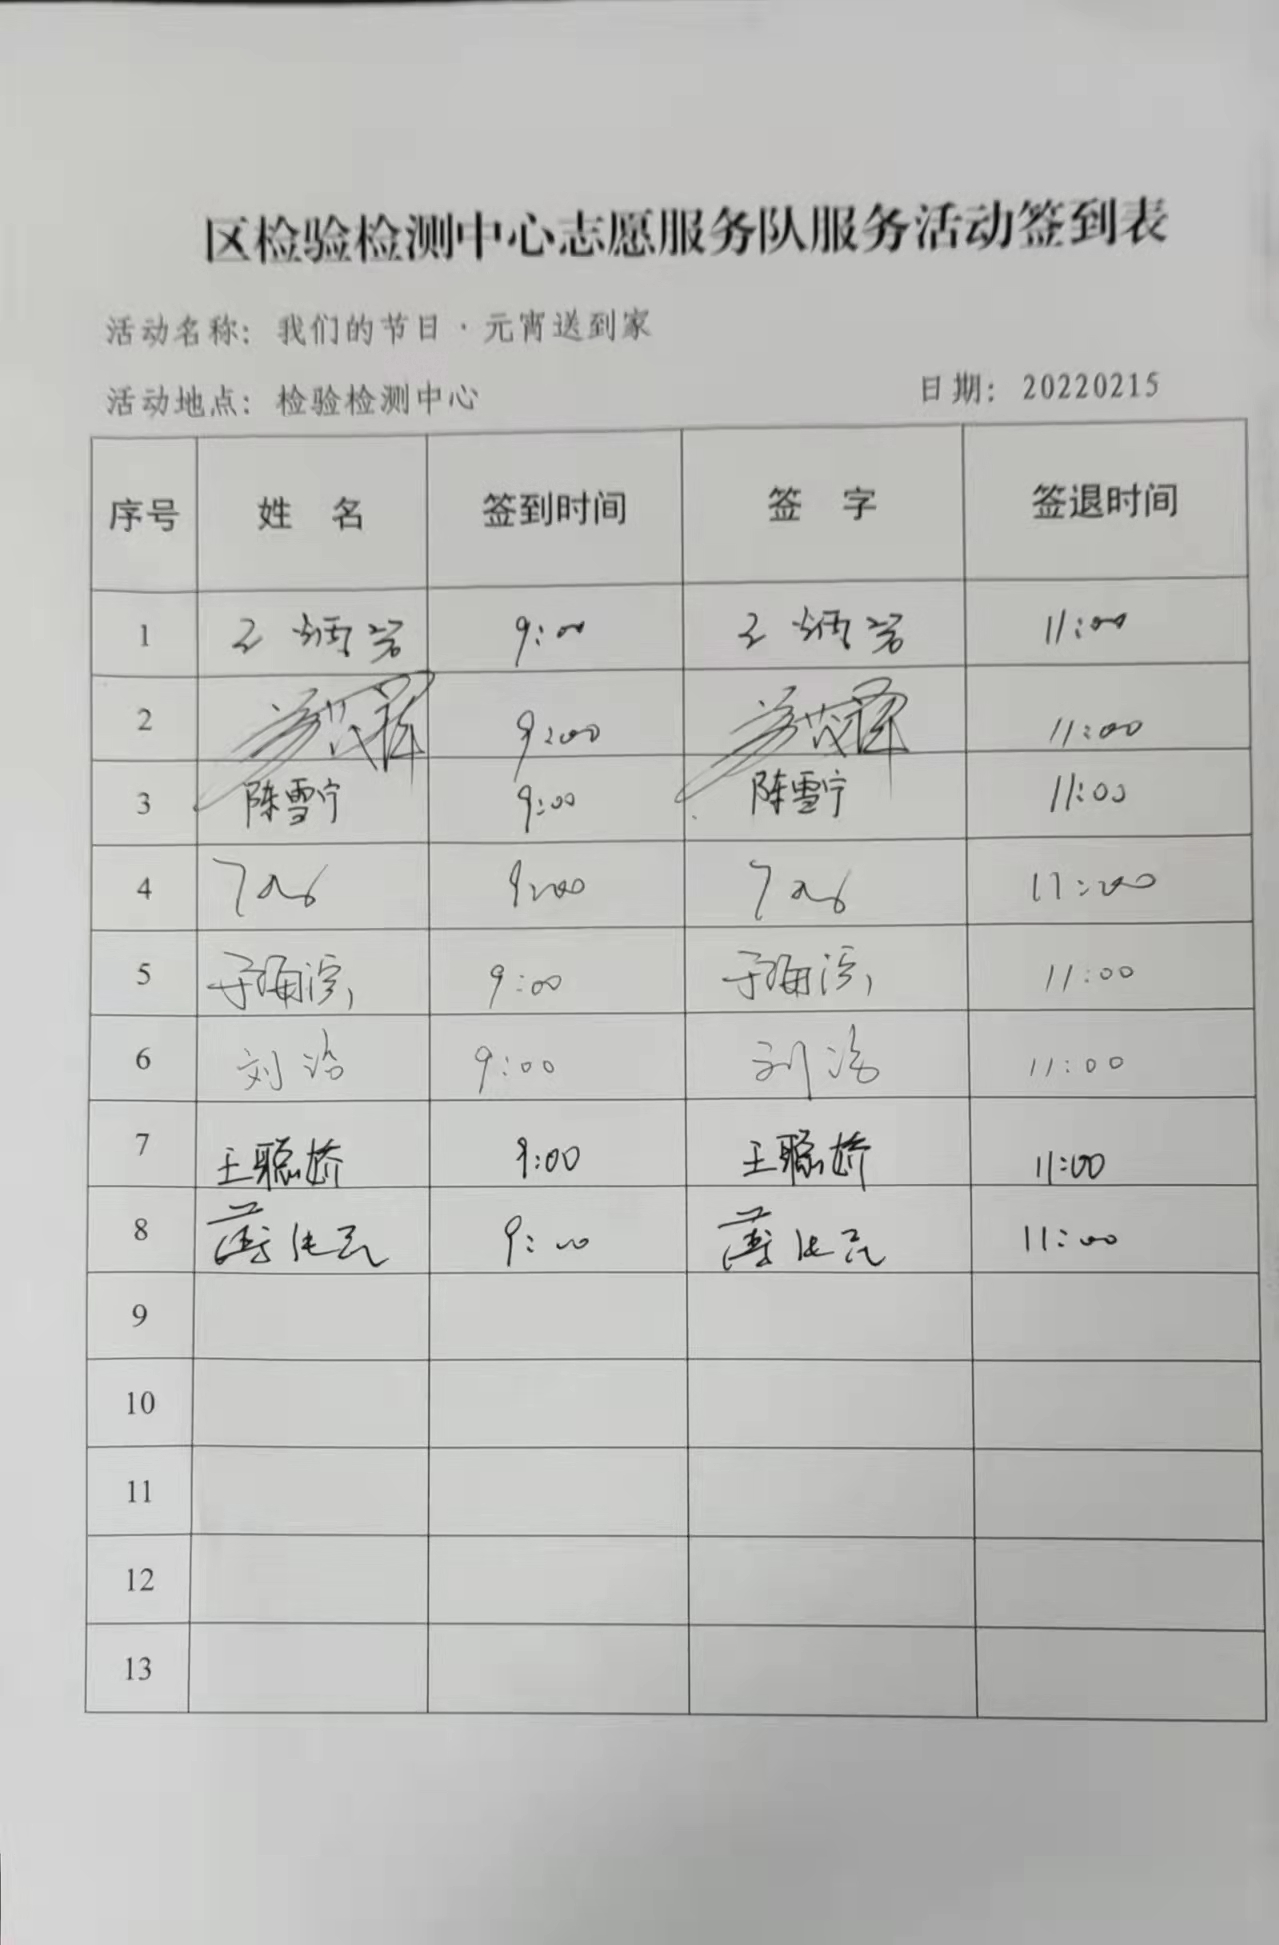 区检验检测中心志愿服务队服务活动签到表
活动名称：我们的节日·元宵送到家
活动地点：检验检测中心 日期：20220215
序号 姓名 签到时间 签字 签退时间
1 9:00 11:00
2 9:00 11:00
3 陈雪宁 9:00 陈雪宁 11:00
4 9:00 11:00
5 于海滨 9:00 于海滨 11:00
6 刘浩 9:00 刘浩 11:00
7 王聪娇 9:00 王聪娇 11:00
8 9:00 11:00
9
10
11
12
13